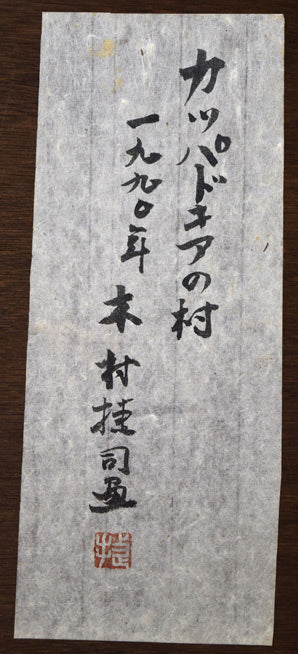 カッパドキアの村
一九九〇年
木村桂司画